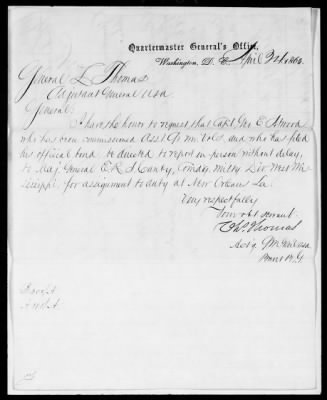 Quartermaster General's Office,
Washington, D. C. April 3rd, 186
General L. Thomas
Adjutant General USA
General:
I have the honor to request that Capt, E. Atwood
who has been commissioned Asst Qr Mr Vols, and who has filed
his official bond, be directed to report in person without delay,
to Maj. General E. R. S. Canby, Comdg. Milty Div. West Mis-
sissippi, for assignment to duty at New Orleans La.
Very respectfully
Your obt servant
Ch. Thomas
Actg. QM Genl USA